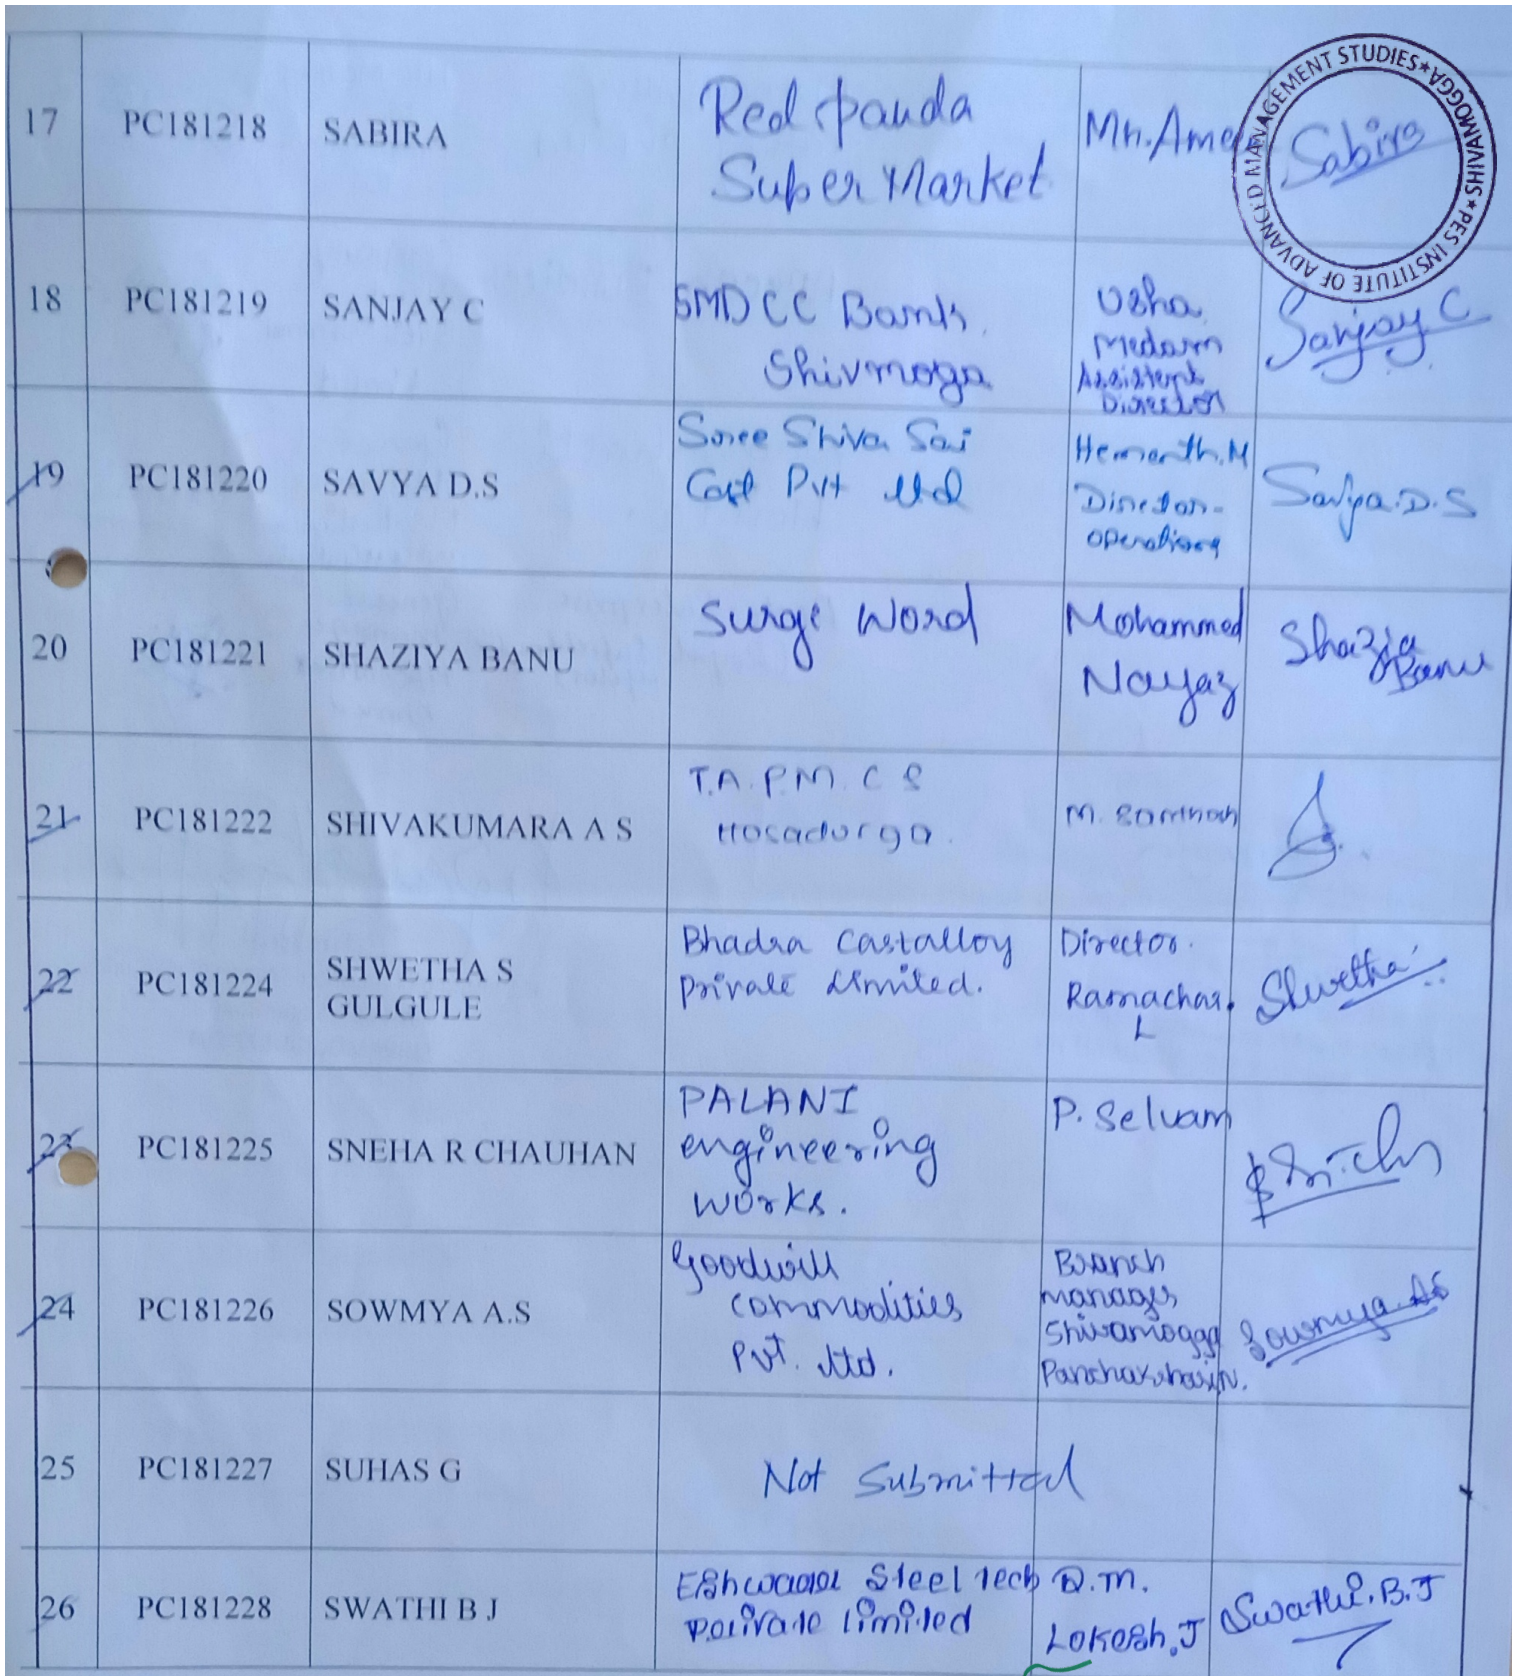 17 PC181218 SABIRA Red panda Super Market Mr. Ame Sabira
PES INSTITUTE OF ADVANCED MANAGEMENT STUDIES * SHIVAMOGGA *
18 PC181219 SANJAY C SMDCC Bank Shivmoga Usha Medam Assistent Director Sanjay C
19 PC181220 SAVYA D.S Sree Shiva Sai Cast Pvt ltd Hemanth.M Director - operations Savya.D.S
20 PC181221 SHAZIYA BANU Surge Word Mohammed Nayaz Shazia Banu
21 PC181222 SHIVAKUMARA A S T.A.P.M.C S Hosadurga. M. Santhosh
22 PC181224 SHWETHA S
GULGULE Bhadra Castalloy Private Limited. Director. Ramachar. L Shwetha
23 PC181225 SNEHA R CHAUHAN PALANI engineering works. P. Selvam
24 PC181226 SOWMYA A.S Goodwill commodities Pvt. ltd. Branch manager Shivamogga Sowmya. AS
25 PC181227 SUHAS G Not Submitted
26 PC181228 SWATHI B J Eshwari Steel Tech Private limited D.M. Lokesh.J Swathi.B.J